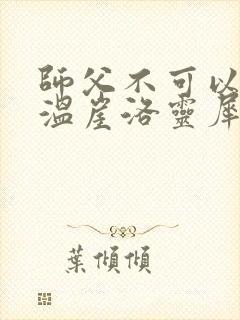 師父不可以
溫崖洛靈犀
葉傾傾